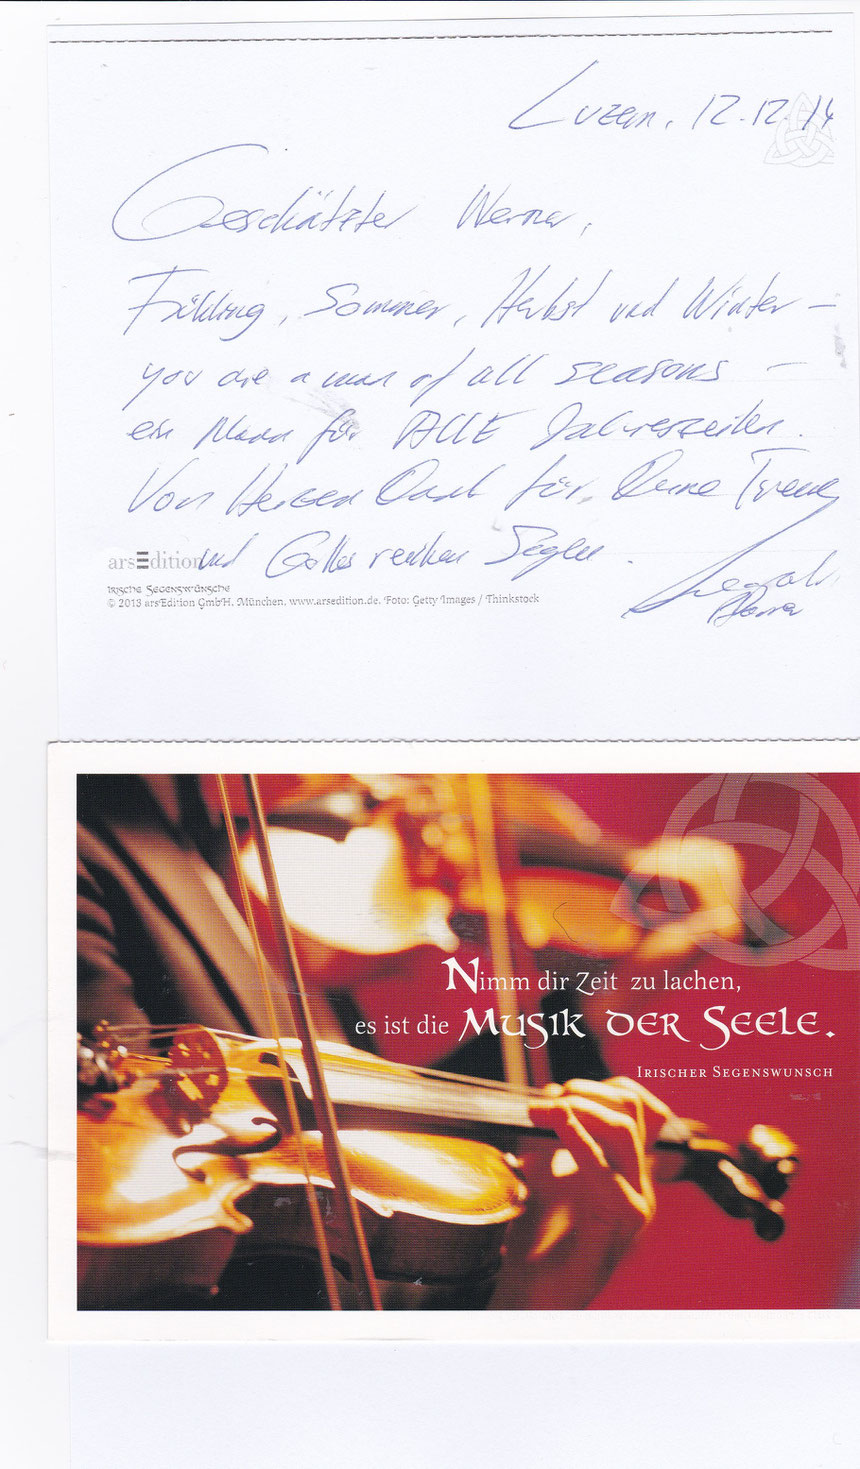 Luzern, 12.12.14
Geschätzter Werner,
Frühling, Sommer, Herbst und Winter –
you are a man of all seasons –
ein Mann für ALLE Jahreszeiten.
Von Herzen Dank für Deine Treue
und Gottes reichen Segen.
arsEdition
Irische Segenswünsche
© 2013 arsEdition GmbH, München, www.arsedition.de, Foto: Getty Images / Thinkstock
Nimm dir Zeit zu lachen,
es ist die Musik der Seele.
Irischer Segenswunsch